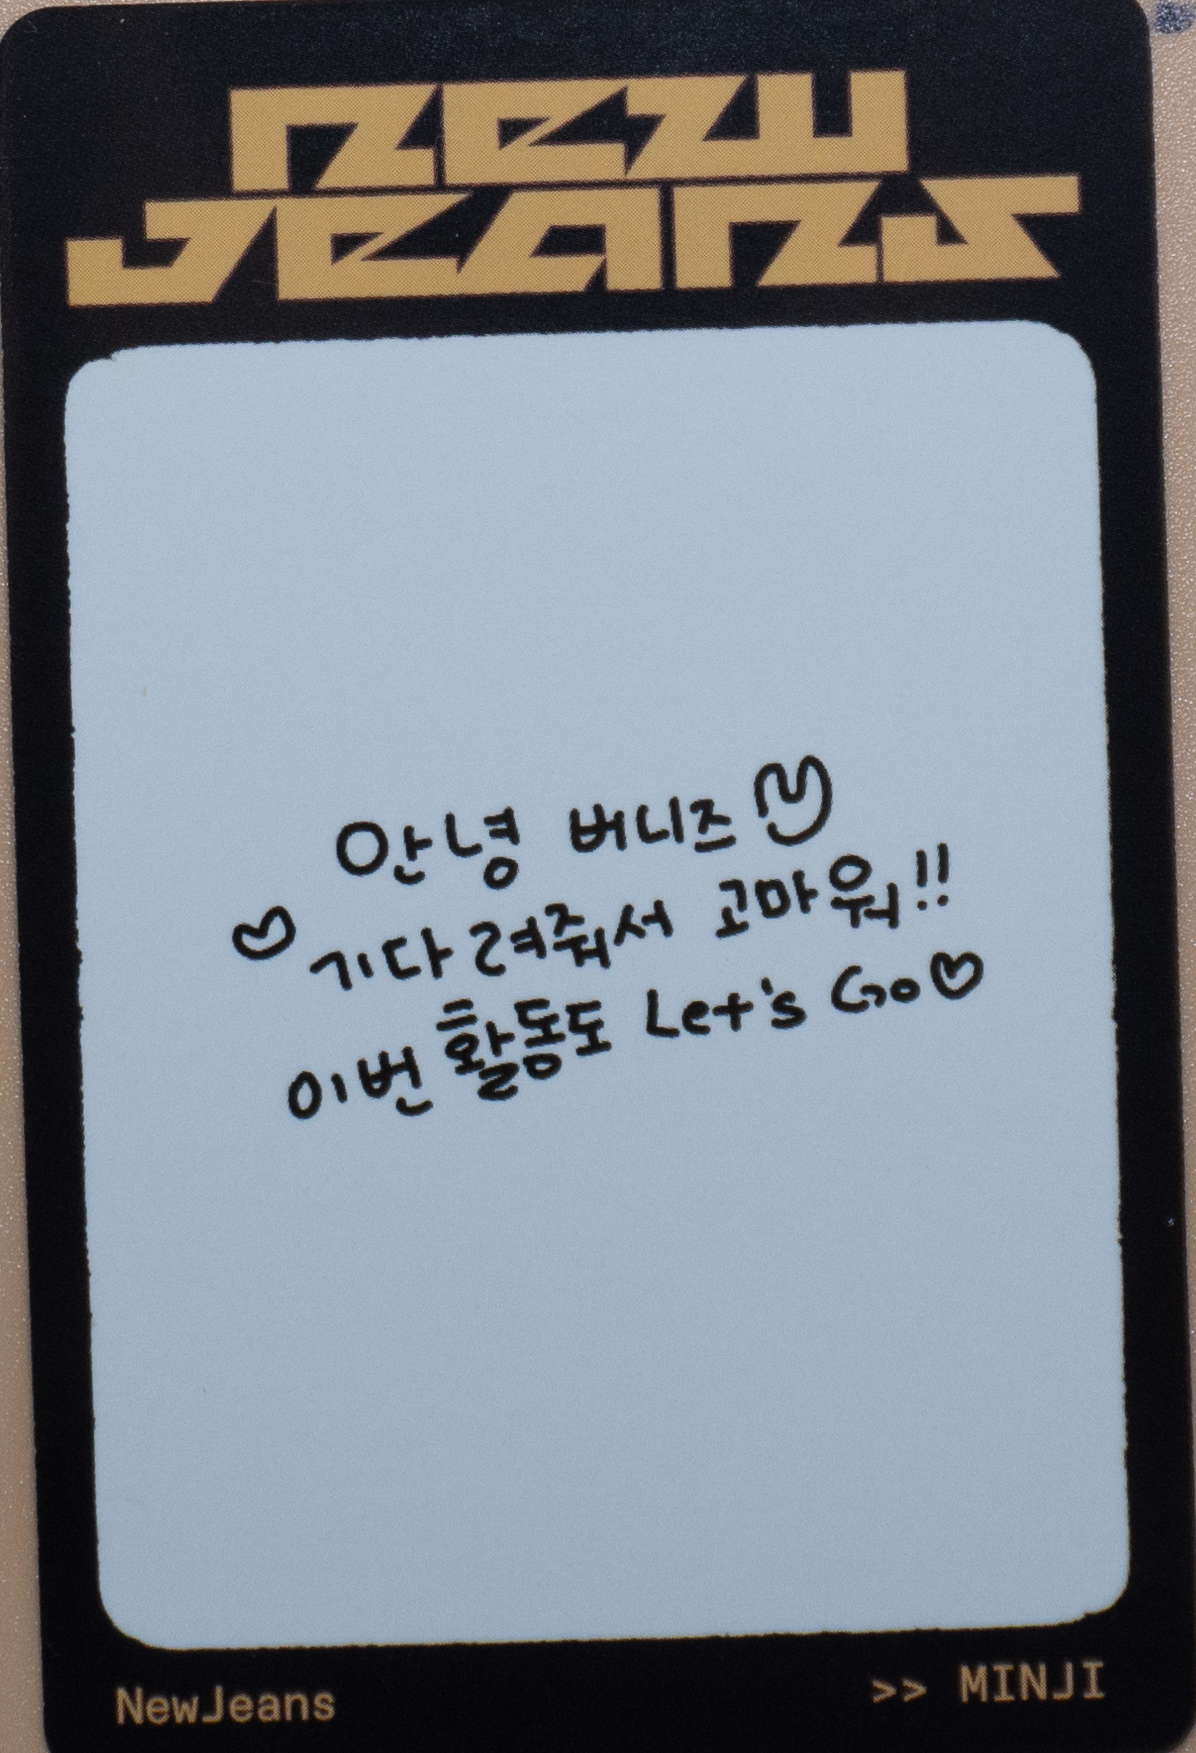 new
jeans
안녕 버니즈
♡ 기다려줘서 고마워!!
이번 활동도 Let's Go♡
NewJeans
>> MINJI